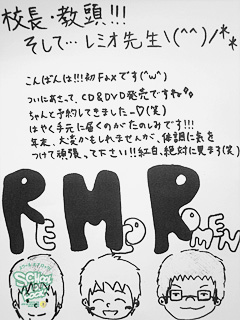 校長・教頭!!!
そして…レミオ先生\(^^)/**
こんばんは!!!初FAXです(^w^)
ついにあさって、CD&DVD発売ですね
ちゃんと予約してきました―♡(笑)
はやく手元に届くのがたのしみです!!!
年末、大変かもしれませんが、体調に気を
つけて頑張って下さい!!紅白、絶対に見ます(笑)
REMIOROMEN
SCHOOL